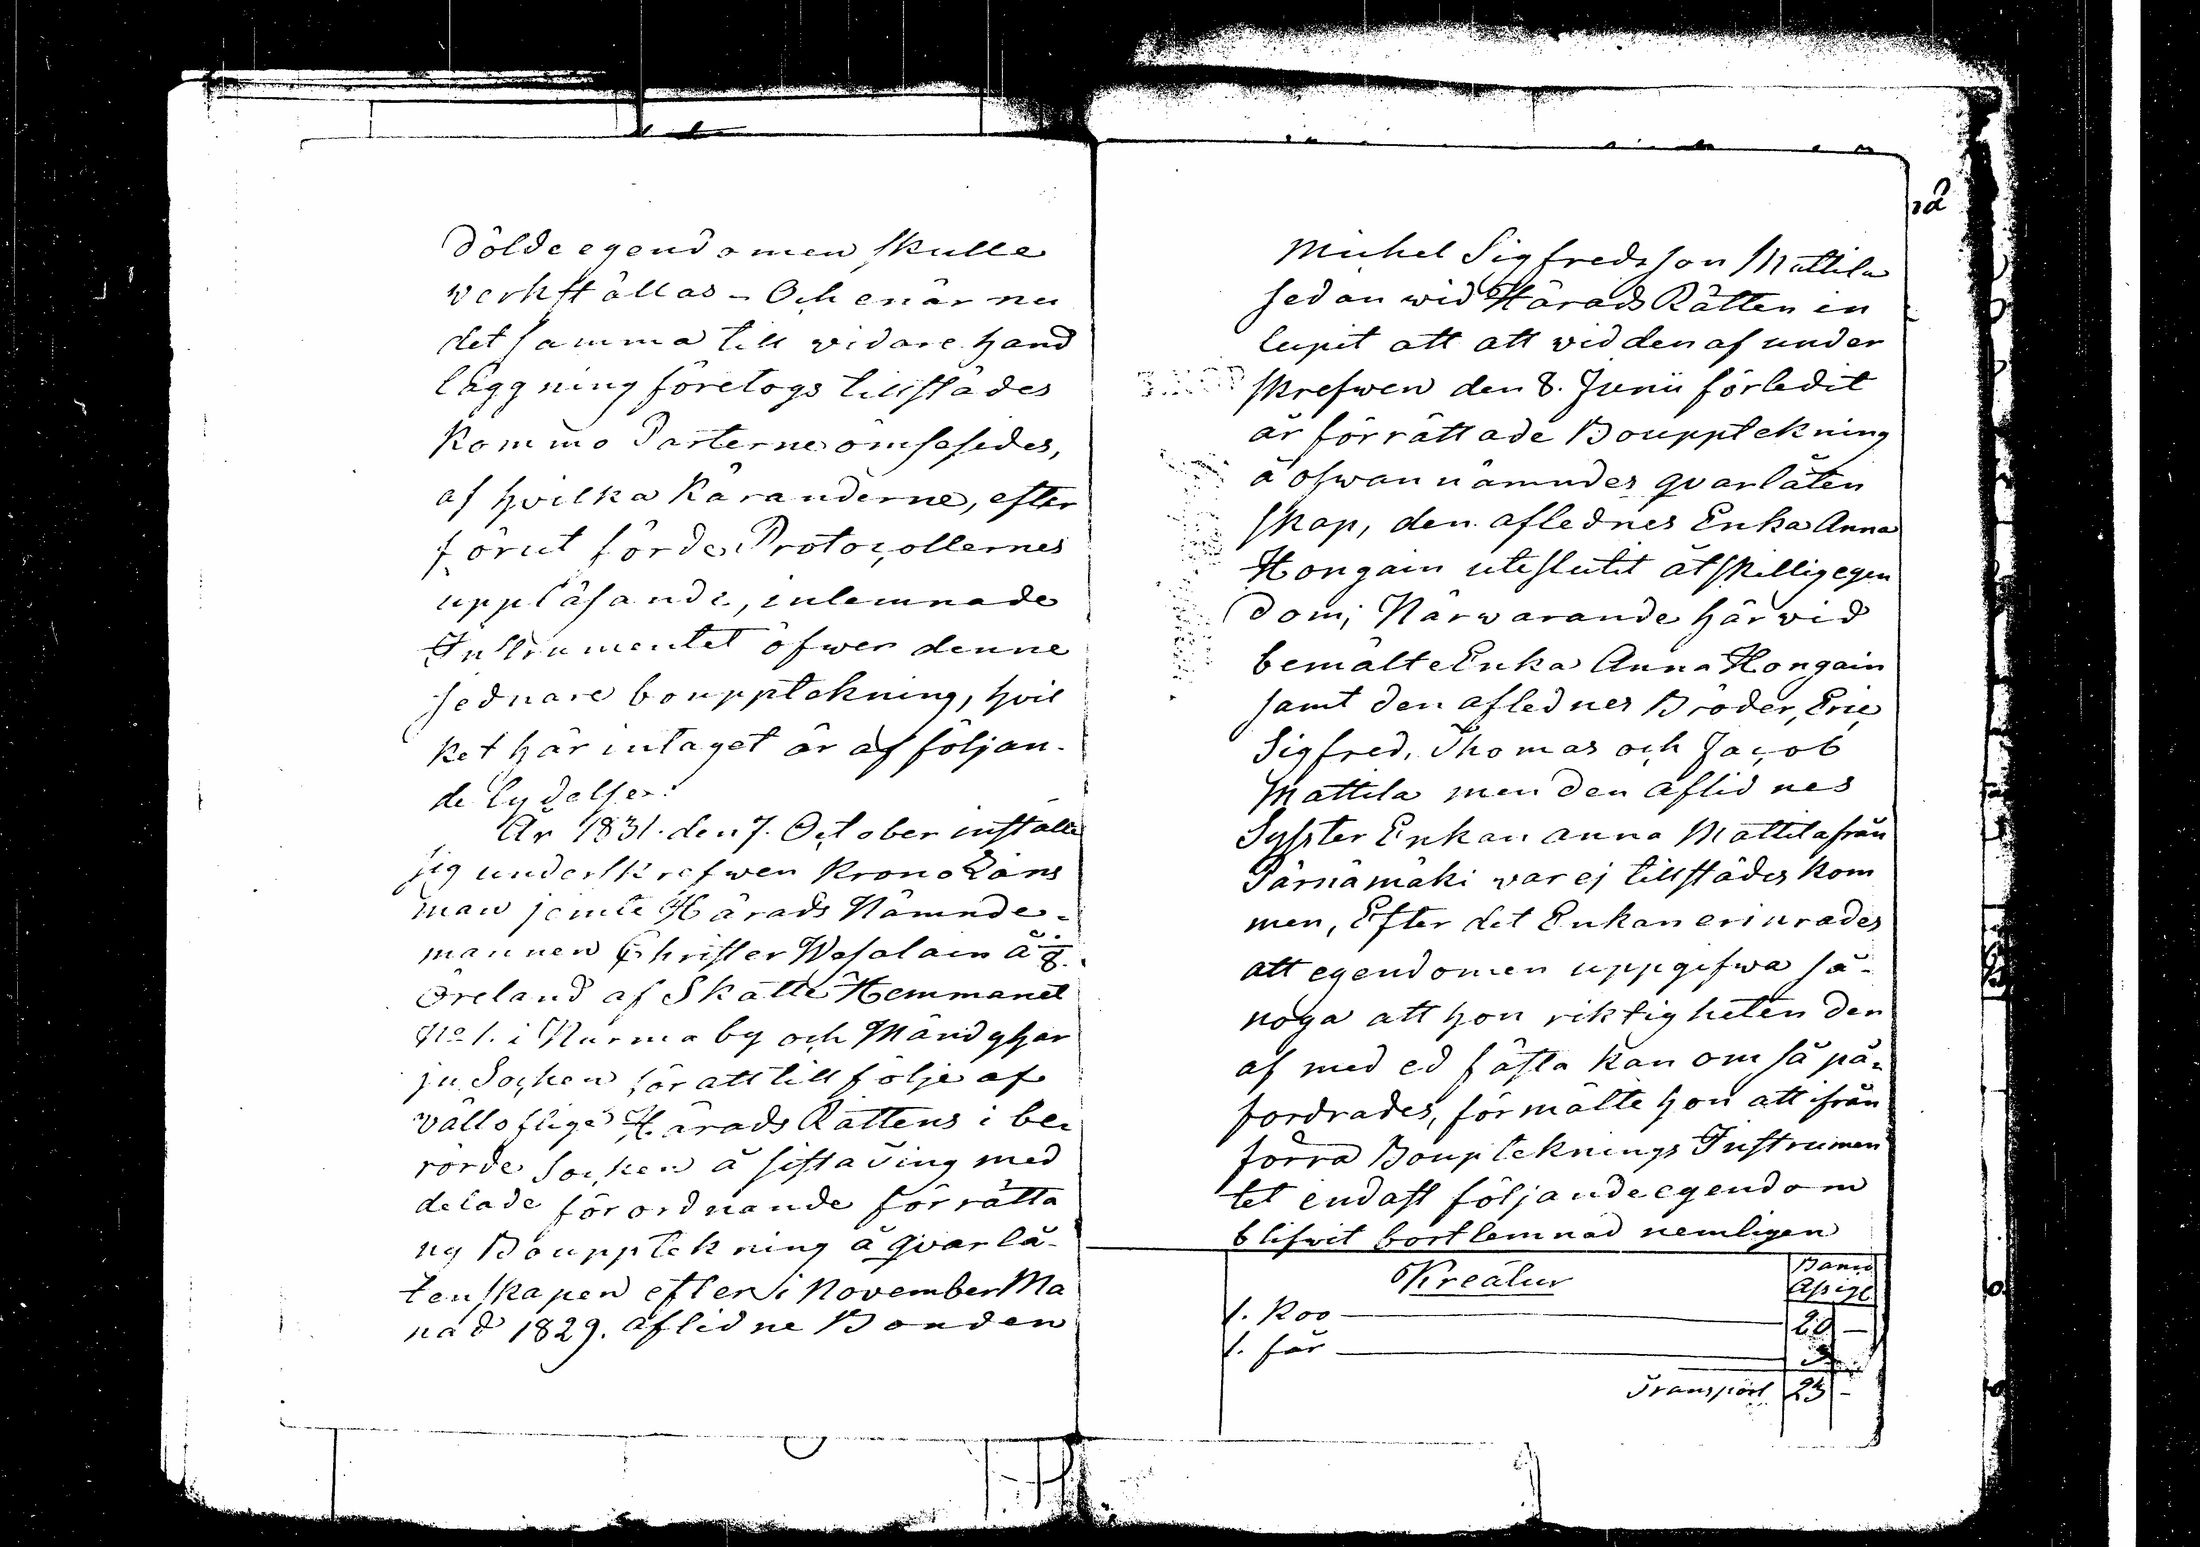 dölde egendomen skulle
werkställas - Och enär nu
detsamma till vidare hand
läggning företogs tillstädes
kommo Parterne ömsesides,
af hvilka Käranderne, efter
förut förde Protocollernes
uppläsande, inlemnade
Instrumentet öfwer denne
sednare boupptekning, hvil
ket här intaget är af följan-
de lydelse:
År 1831. den 7. October instälte
sig underskrefwen Krono Läns
man jemte Härads Nämnde-
mannen Christer Wesalain å 8.
Öreland af Skatte Hemmanet
No 1. i Nurma by och Mändyhar
ju Socken för att till följe af
vällofliga Härads Rättens i be-
rörde Socken å sista Ting med
delade förordnande förrätta
ny Boupptekning å qvarlå-
tenskapen efter i November Må
nad 1829. aflidne Bonden
Michel Sigfredsson Mattila
sedan wid Härads Rätten in
lupit att att wid den af under
skrefwen den 8. Junii förledit
år förrättade Boupptekning
å ofwannämndes qvarlåten
skap, den aflednes Enka Anna
Hongain uteslutit åtskillig egen
dom; Närwarande härvid
bemälte Enka Anna Hongain
samt den aflednes Bröder, Eric,
Sigfred, Thomas och Jacob
Mattila men den aflidnes
Syster Enkan Anna Mattila från
Pärnämäki var ej tillstädes kom
men, Efter det Enkan erinrades
att egendomen uppgifwa så-
noga att hon riktigheten der
af med ed fästa kan om så på-
fordrades, förmälte hon att ifrån
förra Bouptecknings Instrumen
tet endast följande egendom
blifwit bortlemnad nemligen
Kreatur
Banco
Assign
1. Koo 20 -
1. får 3
Transport 23 -